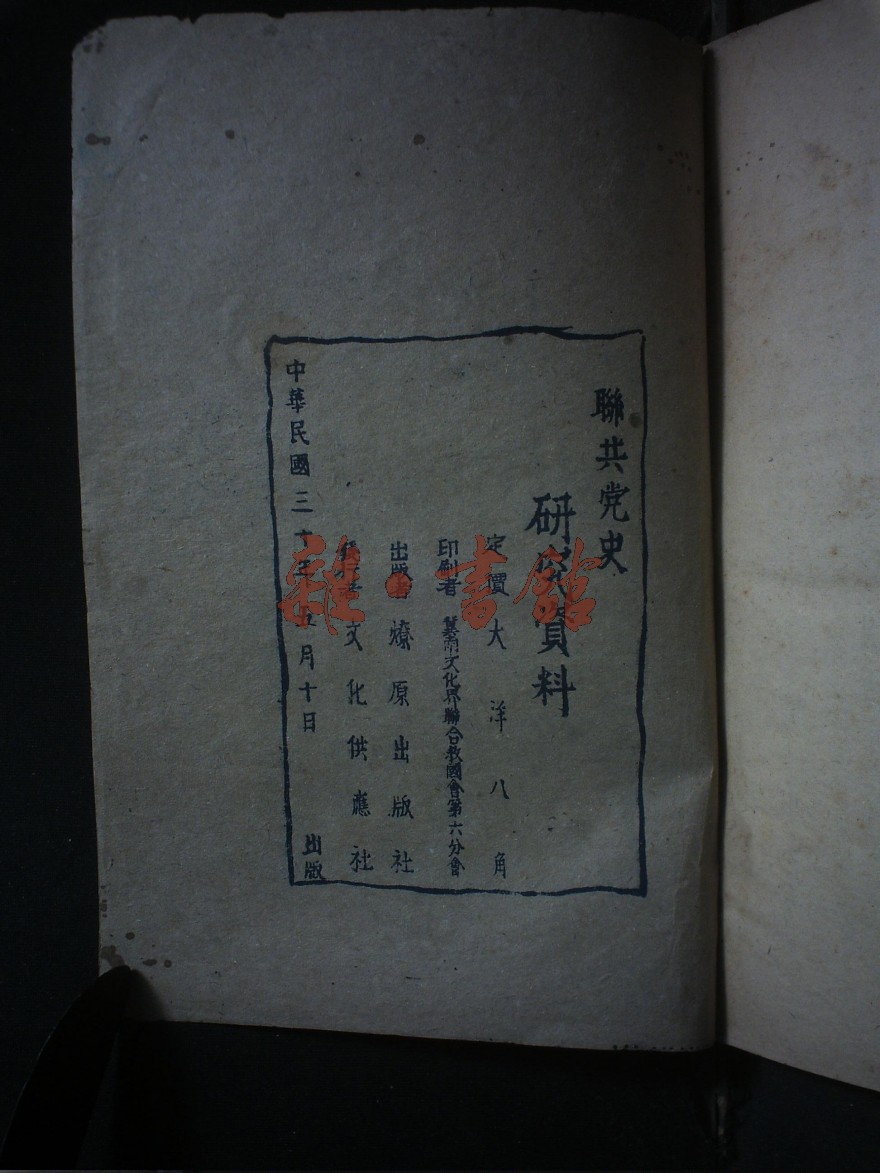 聯共党史
研究資料
定價大洋八角
印刷者 冀南文化界聯合救國會第六分會
出版者 燎原出版社
文化供應社
中華民國三十 五月十日 出版
雜·書館